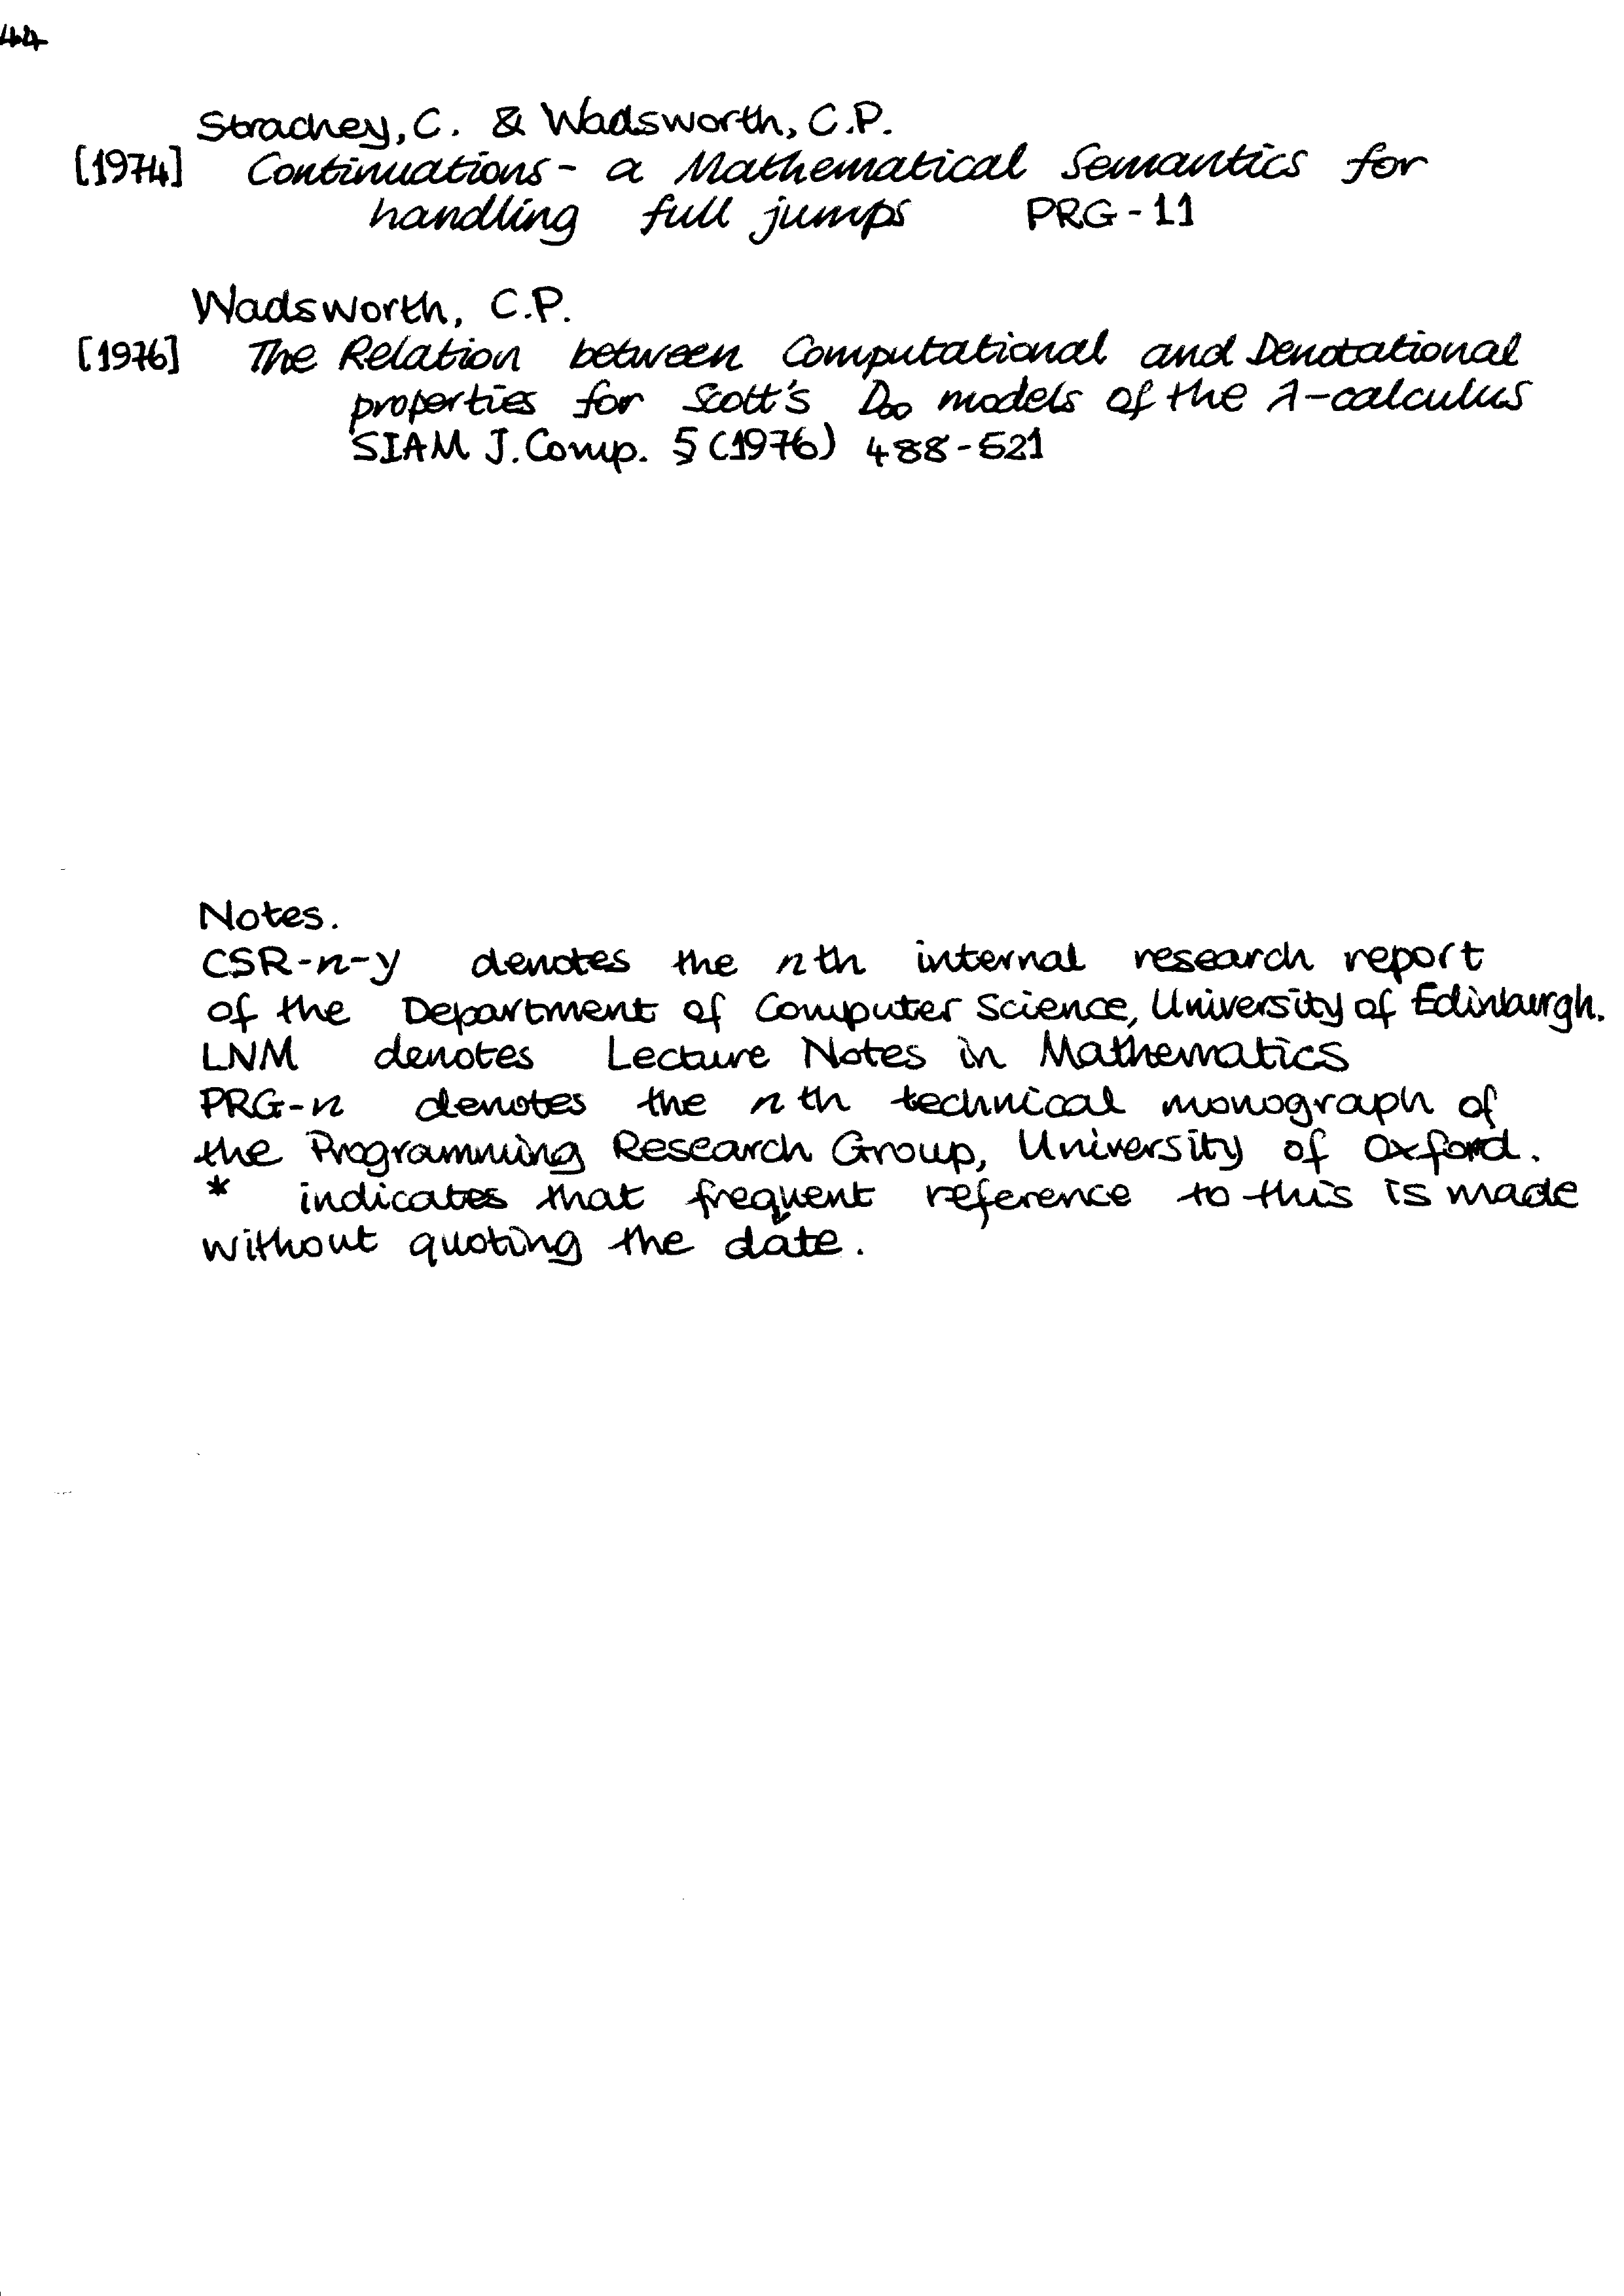 44
Strachey, C. & Wadsworth, C.P.
[1974] Continuations - a Mathematical Semantics for
handling full jumps PRG - 11
Wadsworth, C.P.
[1976] The Relation between Computational and Denotational
properties for Scott's D∞ models of the λ-calculus
SIAM J. Comp. 5 (1976) 488-521
Notes.
CSR-n-y denotes the nth internal research report
of the Department of Computer Science, University of Edinburgh.
LNM denotes Lecture Notes in Mathematics
PRG-n denotes the nth technical monograph of
the Programming Research Group, University of Oxford.
* indicates that frequent reference to this is made
without quoting the date.